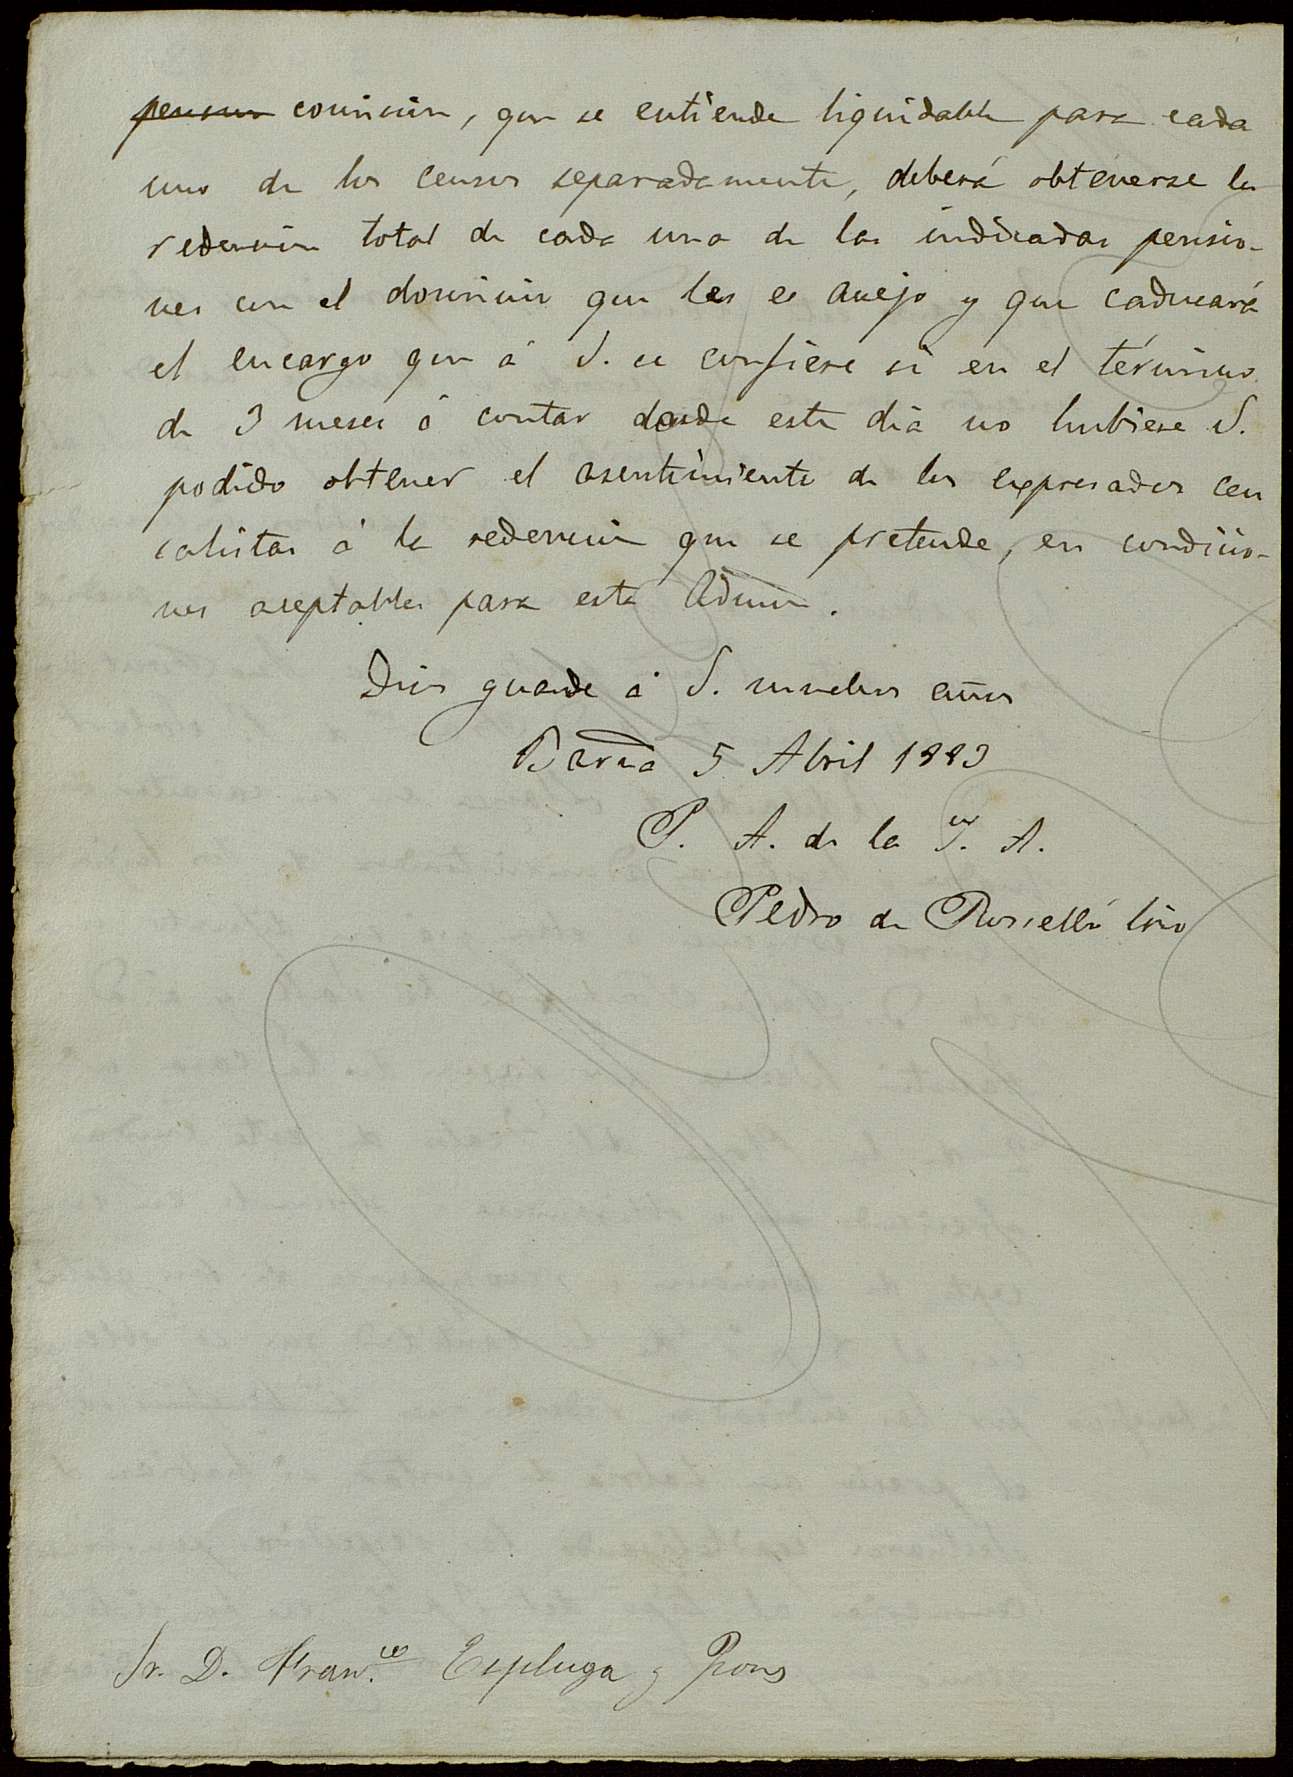 pension comision, que se entiende liquidable para cada
uno de los censos separadamente, deberá obtenerse la
redencion total de cada una de las indicadas pensio-
nes con el dominio que les es anejo y que caducará
el encargo que á S. se confiere si en el término
de 3 meses á contar desde este dia no hubiese S.
podido obtener el asentimiento de los expresados cen
salistas á la redencion que se pretende, en condicio-
nes aceptables para esta Admon.
Dios guarde á S. muchos años
Barna 5 Abril 1883
P. A. de la J. A.
Pedro de Rosselló
Sr. D. Franco Espluga y Pons